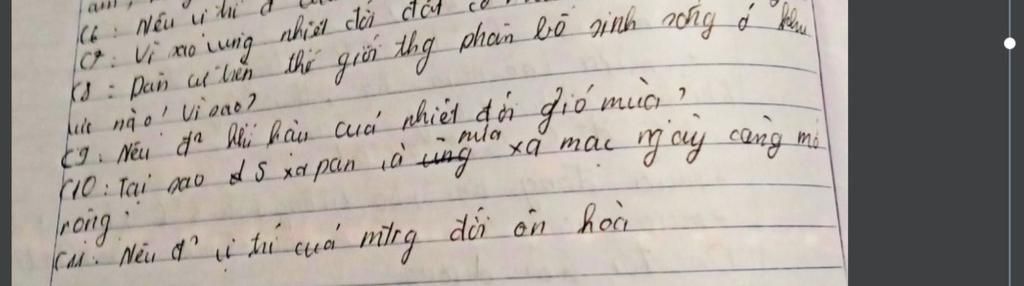 C6: Nêu vị trí đ
C7: Vì sao vùng nhiệt đới đất có
C8: Dân cư trên thế giới thg phân bố sinh sống ở khu
vực nào? Vì sao?
C9: Nêu đ² khí hậu của nhiệt đới gió mùa?
C10: Tại sao dS xapan và nửa xa mạc ngày càng mở
rộng?
C11: Nêu đ² vị trí của mtrg đới ôn hoà